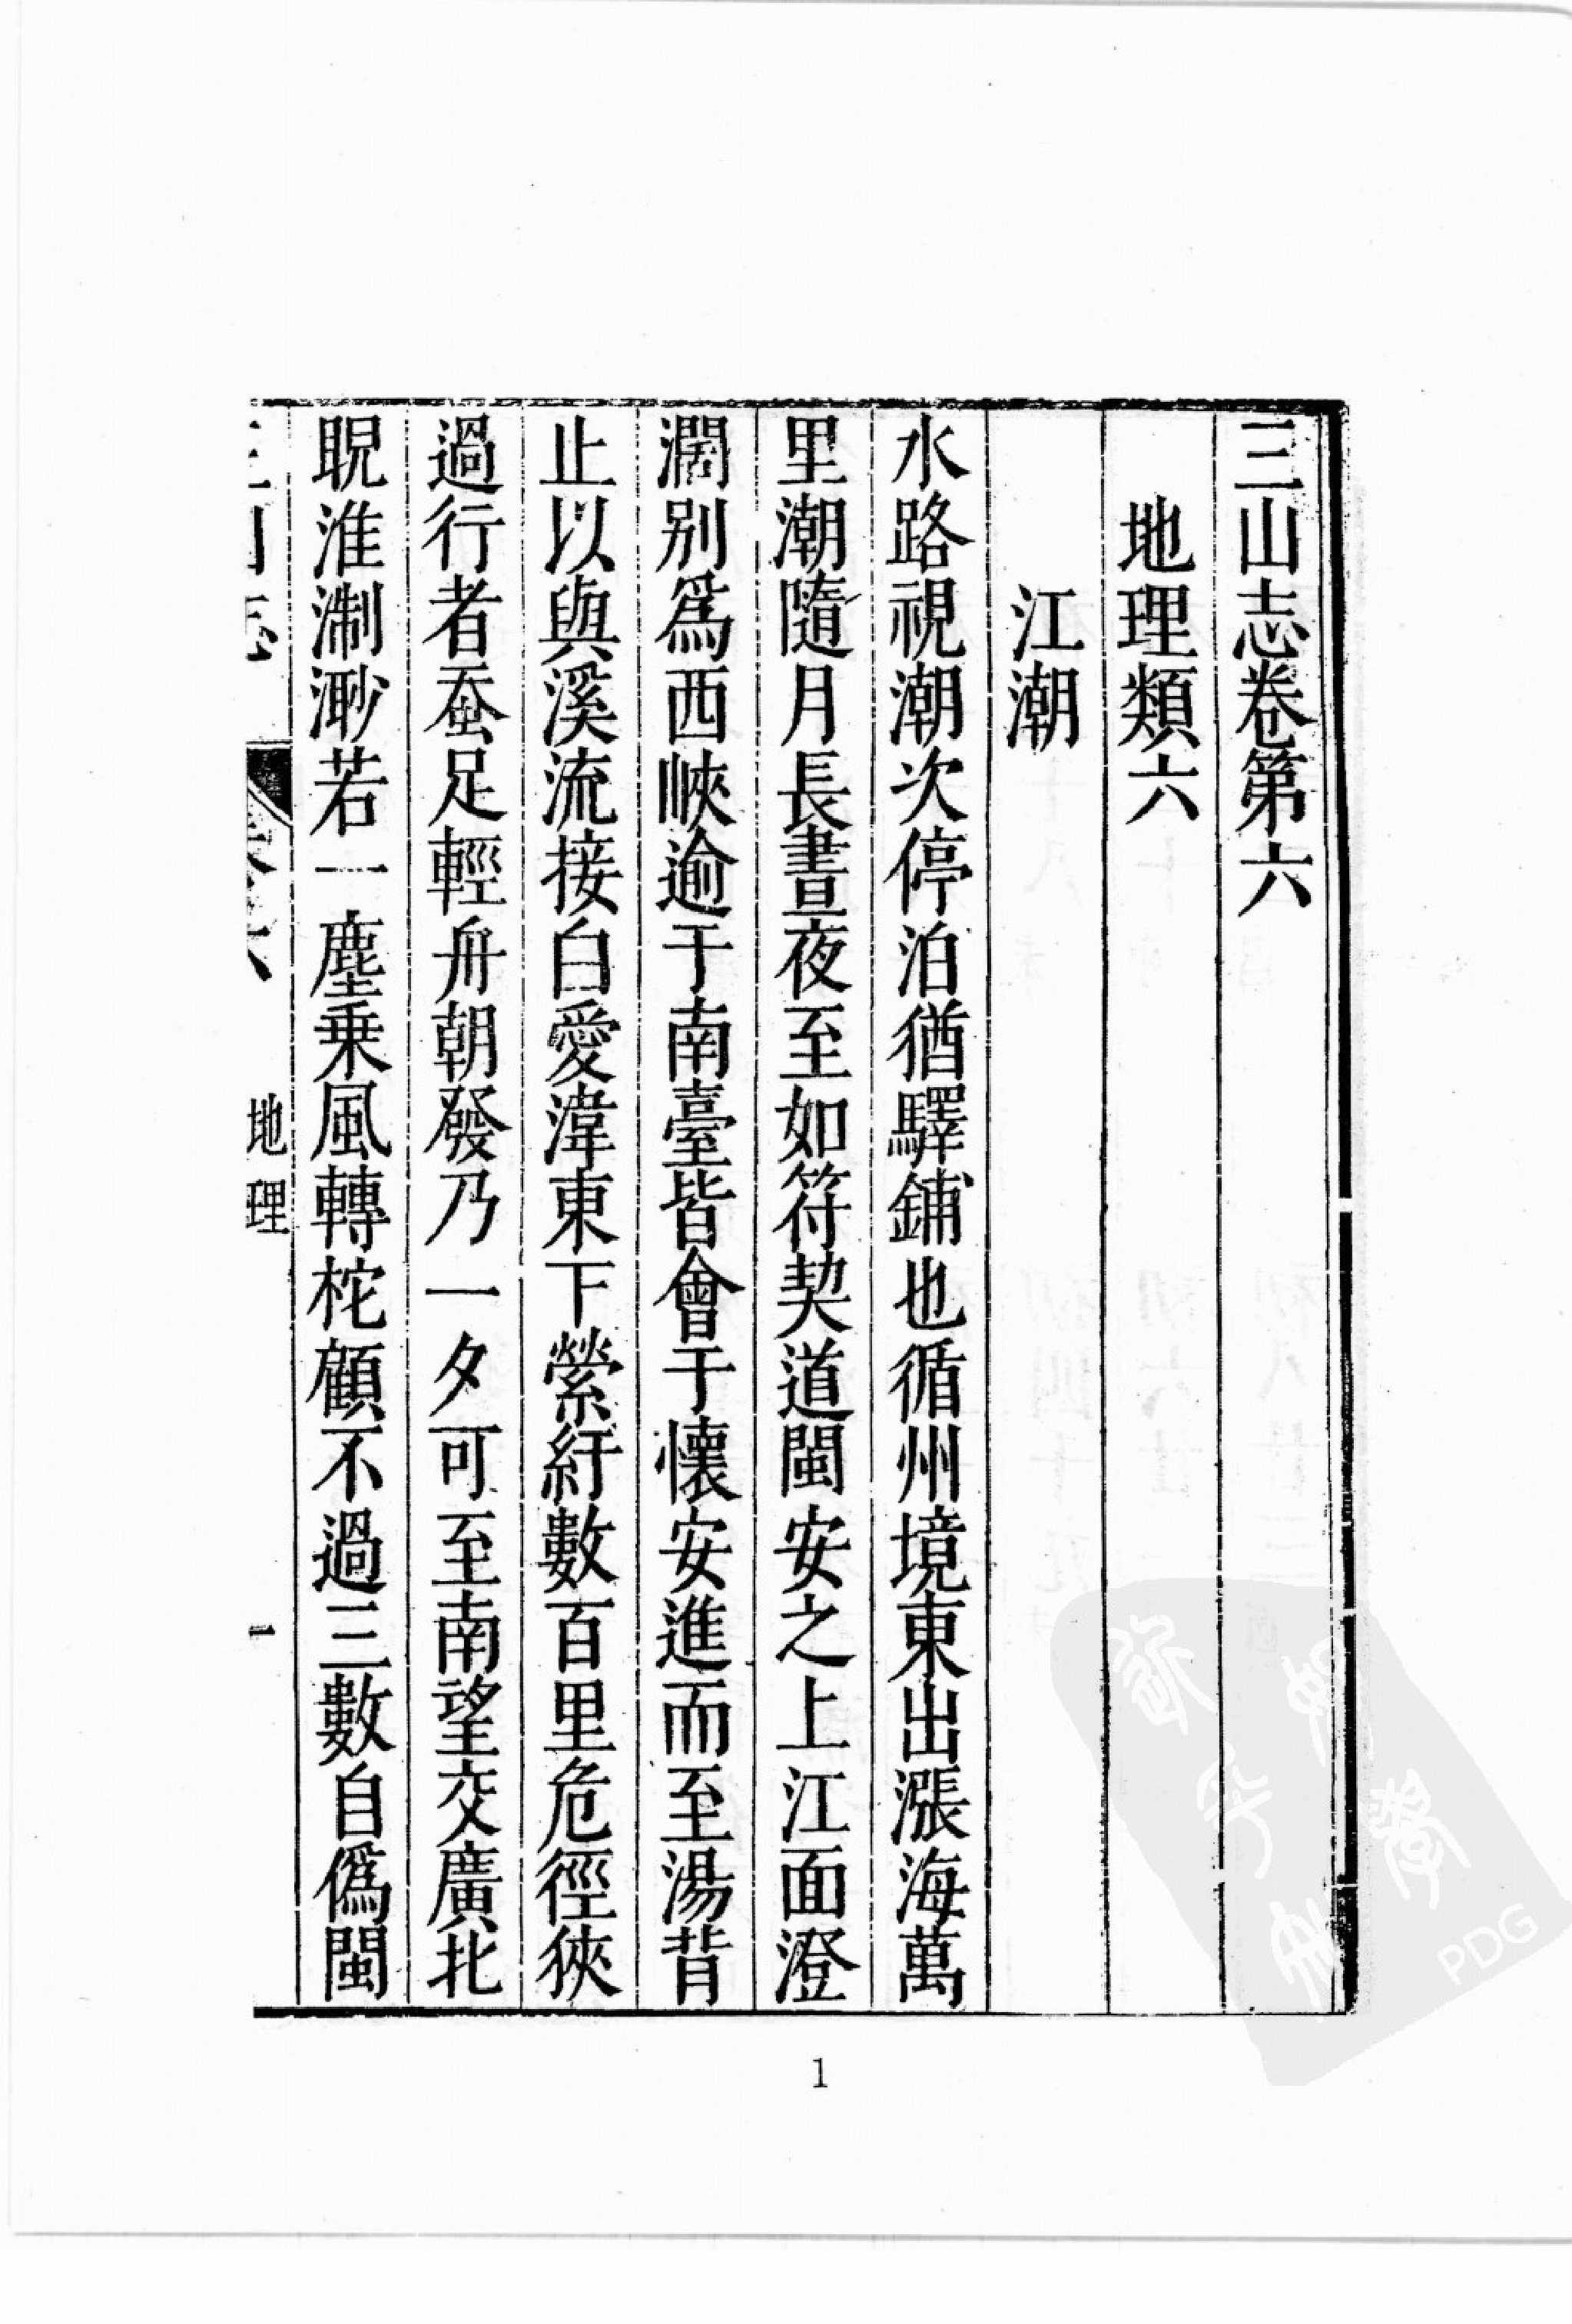 三山志卷第六
地理類六
江潮
水路視潮次停泊猶驛鋪也循州境東出漲海萬
里潮隨月長晝夜至如符契道閩安之上江面澄
濶别爲西峽逾于南臺皆會于懷安進而至湯背
止以與溪流接白愛湋東下縈紆數百里危徑狹
過行者蚕足輕舟朝發乃一夕可至南望交廣北
睨淮淛渺若一塵乗風轉柁顧不過三數自僞閩
三山志
卷六
地理
一
1
PDG